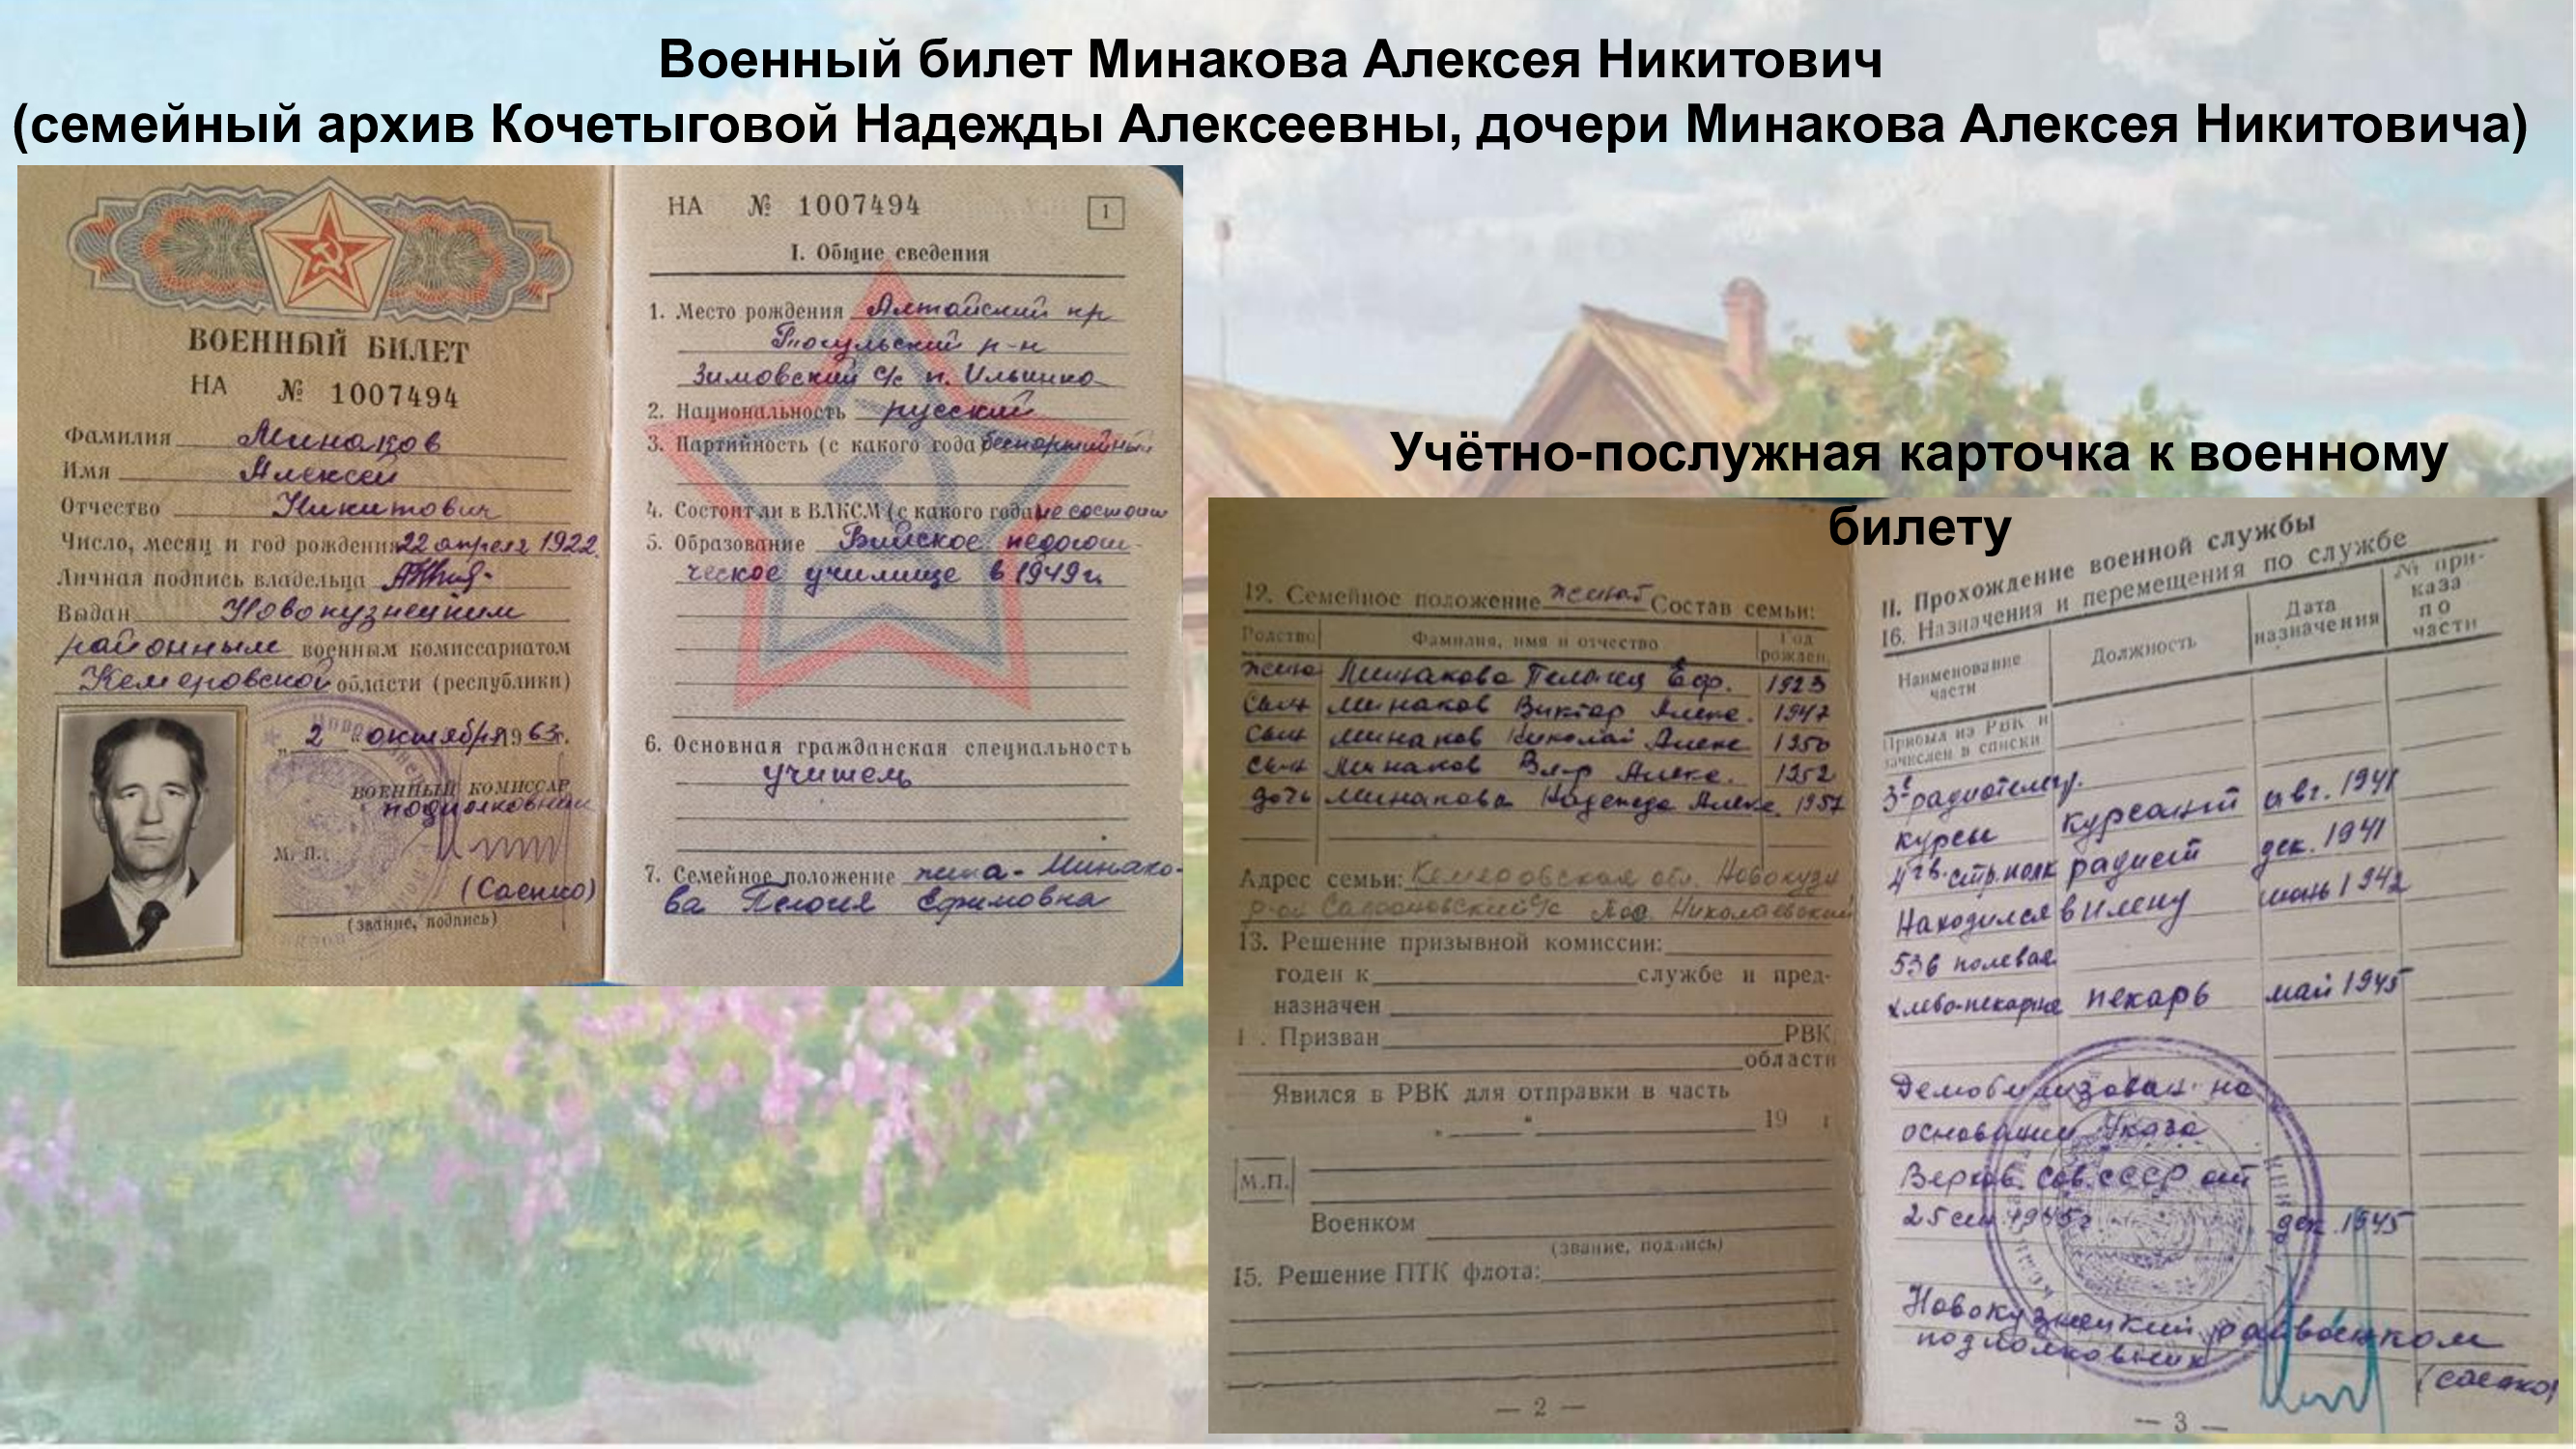 Военный билет Минакова Алексея Никитович
(семейный архив Кочетыговой Надежды Алексеевны, дочери Минакова Алексея Никитовича)
ВОЕННЫЙ БИЛЕТ
НА № 1007494
Фамилия Минаков
Имя Алексей
Отчество Никитович
Число, месяц и год рождения 22 апреля 1922
Личная подпись владельца
Выдан Новокузнецким
районным военным комиссариатом
Кемеровской области (республики)
„2" октября 1963г.
ВОЕННЫЙ КОМИССАР
подполковник
М. П.
(Саенко)
(звание, подпись)
НА № 1007494
1
I. Общие сведения
1. Место рождения Алтайский кр
Тогульский р-н
Зимовский с/с п. Ильинка
2. Национальность русский
3. Партийность (с какого года) беспартийный
4. Состоит ли в ВЛКСМ (с какого года) не состоит
5. Образование Бийское педагоги-
ческое училище в 1949г.
6. Основная гражданская специальность
учитель
7. Семейное положение жена - Минако-
ва Ефимовна
Учётно-послужная карточка к военному
билету
12. Семейное положение женат Состав семьи:
Родство Фамилия, имя и отчество Год рожден.
жена Минакова Еф. 1923
сын Минаков Виктор Алекс. 1947
сын Минаков Николай Алекс 1950
сын Минаков Вл-р Алекс. 1952
дочь Минакова Надежда Алекс. 1957
Адрес семьи: Кемеровская обл. Новокузн
р-он с/с пос. Николаевский
13. Решение призывной комиссии:
годен к службе и пред-
назначен
Призван РВК
области
Явился в РВК для отправки в часть
19 г
М.П.
Военком
(звание, подпись)
15. Решение ПТК флота:
— 2 —
II. Прохождение военной службы
16. Назначения и перемещения по службе
Наименование части
Должность
Дата назначения
№ приказа по части
Прибыл из РВК и
зачислен в списки
3е радиотелегр.
курсы курсант авг. 1941
4 гв. стр. полк радист дек. 1941
Находился в плену июнь 1942
536 полевая
хлебо-пекарня пекарь май 1945
Демобилизован на
основании Указа
Верхов. Сов. СССР от
25 сен 1945г дек. 1945
Новокузнецкий райвоенком
подполковник
(Саенко)
— 3 —